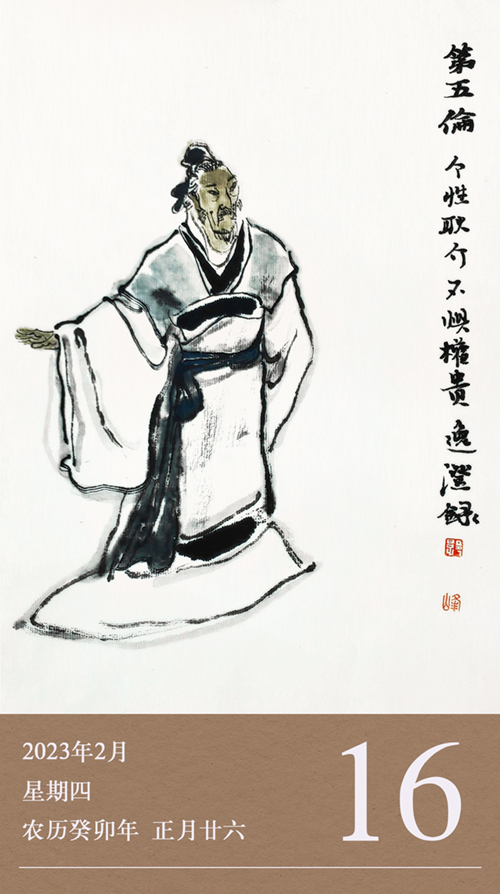 第五倫 个性耿介 不惧權贵 逸澄錄
峰
2023年2月
星期四
农历癸卯年 正月廿六
16